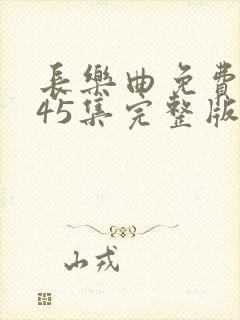 長樂曲免費
45集完整版
山戎